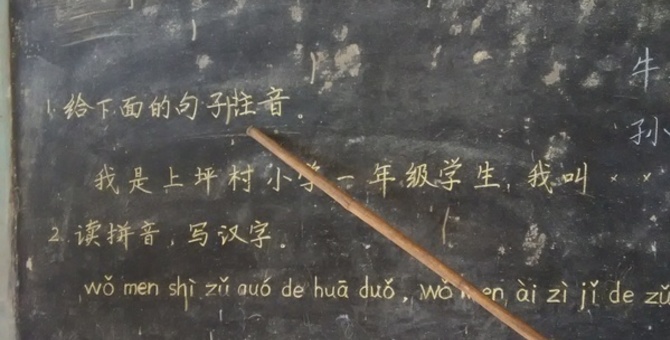 1.给下面的句子注音。
我是上坪村小学一年级学生,我叫××
2.读拼音,写汉字。
wǒ men shì zǔ guó de huā duǒ, wǒ men ài zì jǐ de zǔ
牛
孙